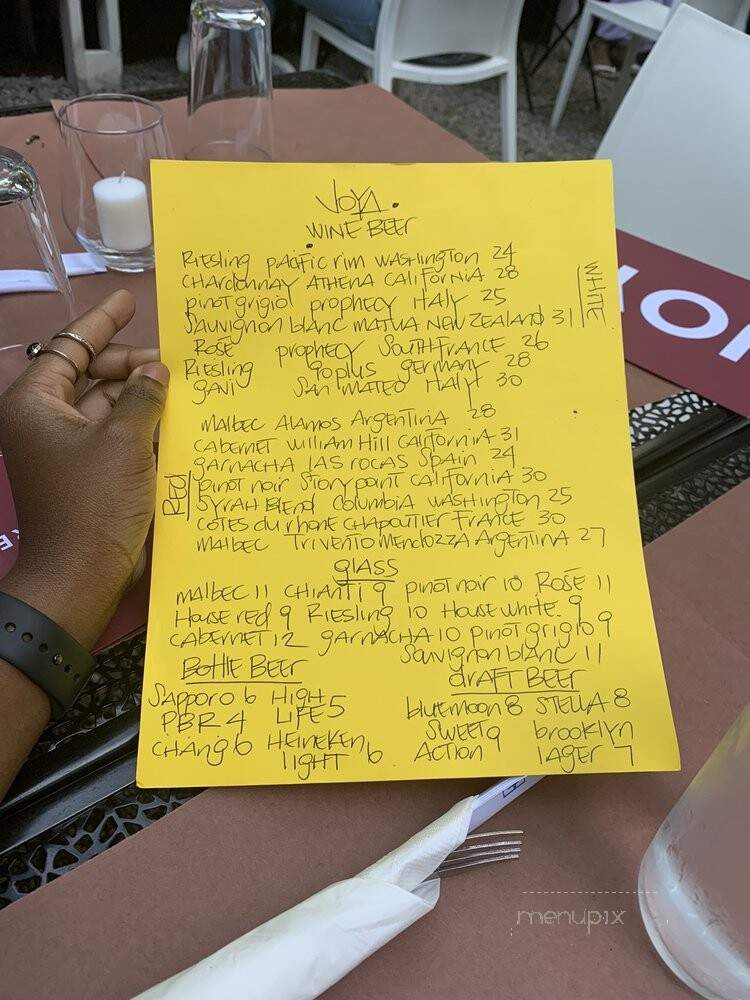 JOYA.
WINE BEER
Riesling pacific rim washington 24
CHArdonnay ATHENA CALIFORNIA 28
pinot grigiol prophecy ITALY 25
Sauvignon blanc MATUA NEW ZEALAND 31
ROSE prophecy South FRANCE 26
Riesling 90 plus germany 28
gAVi SAN MATEO ITALY 30
WHITE
MALBEC ALAMOS ARgENTINA 28
CABERNET william Hill CALIFORNIA 31
gARNACHA LAS ROCAS SpAIN 24
pinot noir Story point CALIFORNIA 30
SYRAH BlEND Columbia WASHINgTON 25
COTES du rhone CHApOUTIER FRANCE 30
MALBEC TRIVENTO MENDOZZA ARgENTINA 27
Red
glass
MALBEC 11 CHIANTI 9 pinot noir 10 ROSE 11
House red 9 Riesling 10 House white. 9
CABERNET 12 gARNACHA 10 pinot grigio 9
Sauvignon blanc 11
BOTTlE BEER
SApporo 6 HIGH LIFE 5
PBR 4
CHANg 6 HEINEKEN lIgHT 6
drAFT BEER
bluemoon 8 STELLA 8
SWEET ACTION 9 brooklyn lAgER 7
JOY
menupix